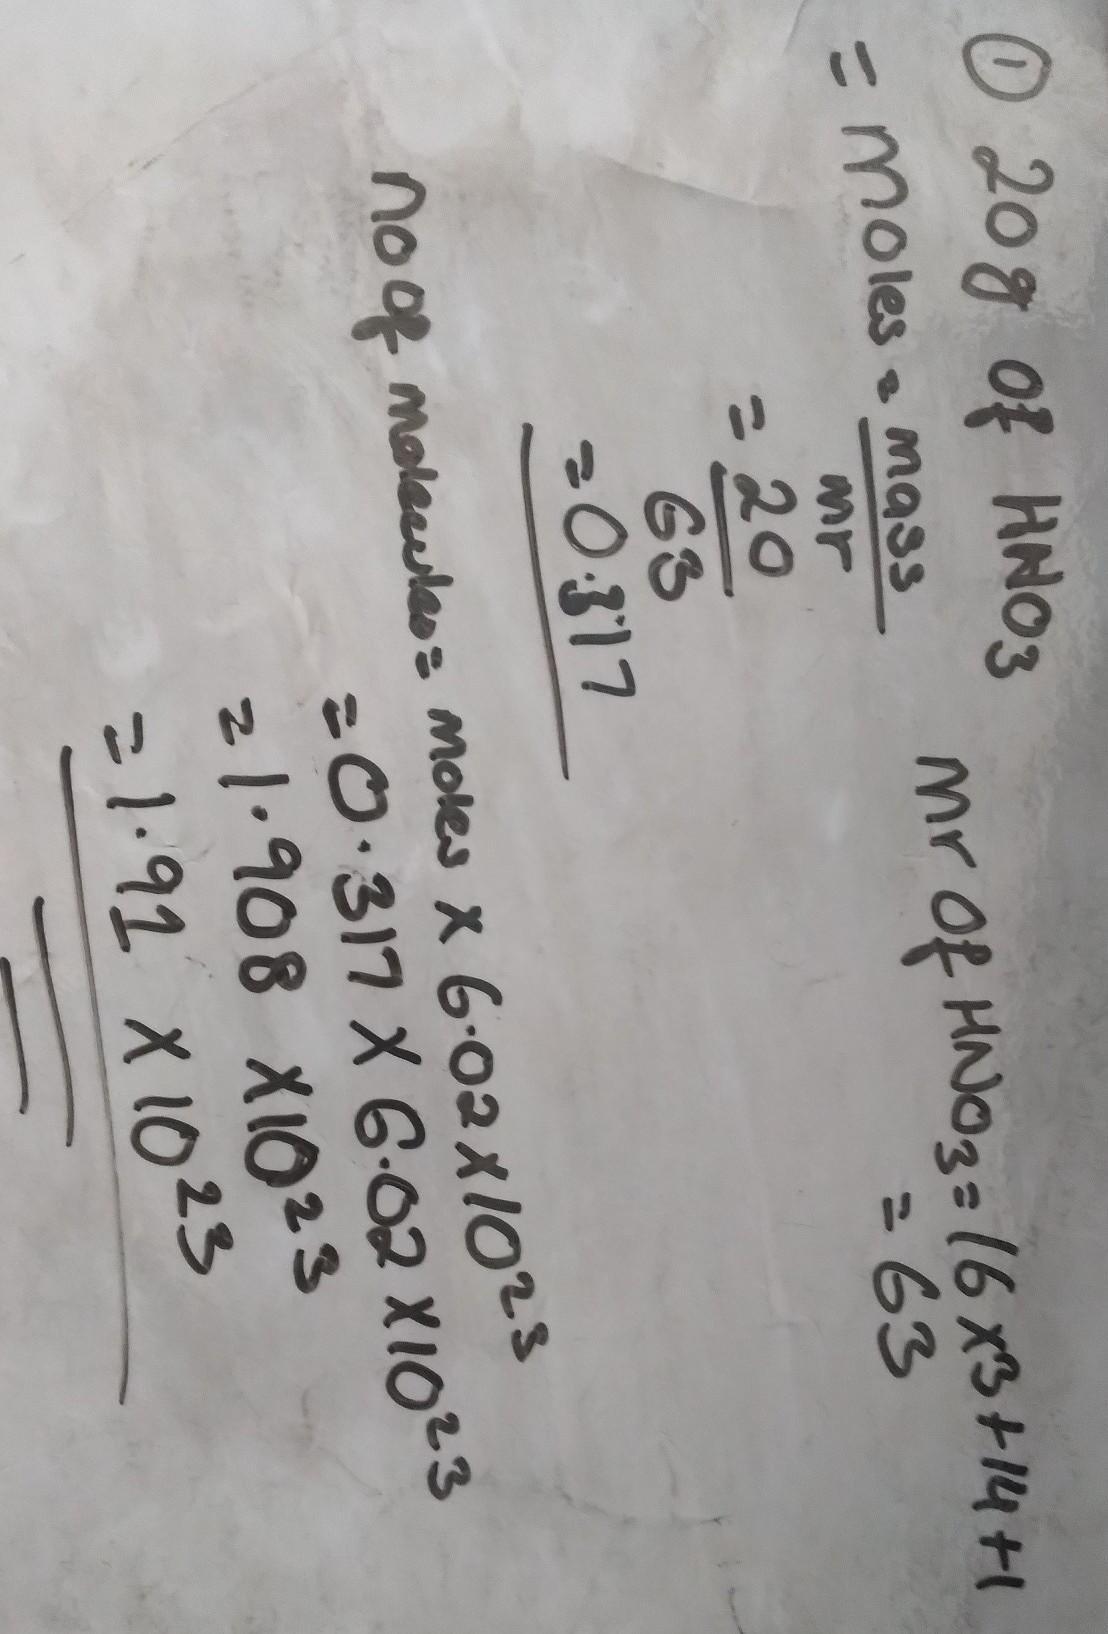 ① 20g of HNO3
Mr of HNO3 = 16 x 3 + 14 + 1
= 63
= Moles = mass
mr
= 20
63
= 0.317
no of molecules = moles x 6.02 x 10²³
= 0.317 x 6.02 x 10²³
= 1.908 x 10²³
= 1.91 x 10²³